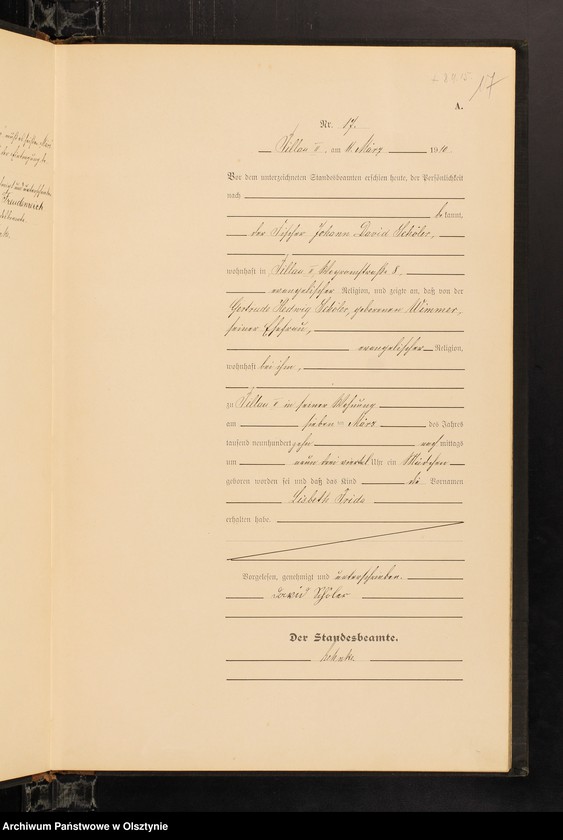 17
A.
Nr. 17.
Pillau I. am 11. März 1910.
Vor dem unterzeichneten Standesbeamten erschien heute, der Persönlichkeit
nach
be kannt,
der Fischer Johann David Schöler,
wohnhaft in Pillau I, 8,
evangelischer Religion, und zeigte an, daß von der
Gertrude Hedwig Schöler, geborenen Wimmer,
seiner Ehefrau,
evangelischer Religion,
wohnhaft bei ihm,
zu Pillau I in seiner Wohnung
am sieben ten März des Jahres
tausend neunhundert zehn nach mittags
um neun drei viertel Uhr ein Mädchen
geboren worden sei und daß das Kind die Vornamen
Lisbeth Frida
erhalten habe.
Vorgelesen, genehmigt und unterschrieben.
David Schöler
Der Standesbeamte.
Archiwum Państwowe w Olsztynie